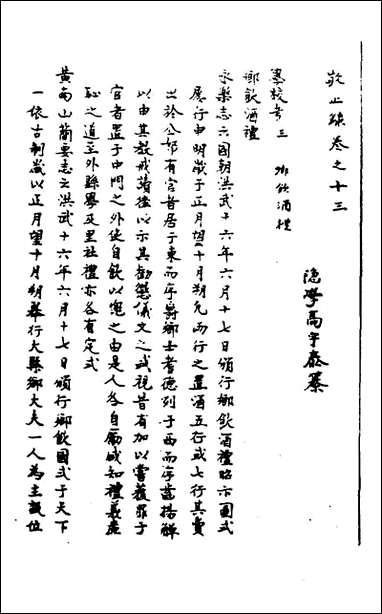 敬止録卷之十三
隐學高宇泰纂
學校考三 鄉飲酒禮
鄉飲酒禮
永樂志云國朝洪武十六年六月十七日頒行鄉飲酒禮昭示圖式
屢行申明歲于正月望十月朔兀而行之置酒五行或七行其賓
出於公卿有官者居于東而序爵鄉士耆德列于西而序齒揚觶
以由其教戒讀律以示其勸懲儀文之式視昔有加以嘗獲罪于
官者置于中門之外使自飲以愧之由是人各自勵咸知禮義廉
恥之道至外縣學及里社禮亦各有定式
黄南山簡要志云洪武十六年六月十七日頒行鄉飲圖式于天下
一依古制歲以正月望十月朔舉行大縣鄉大夫一人為主設位